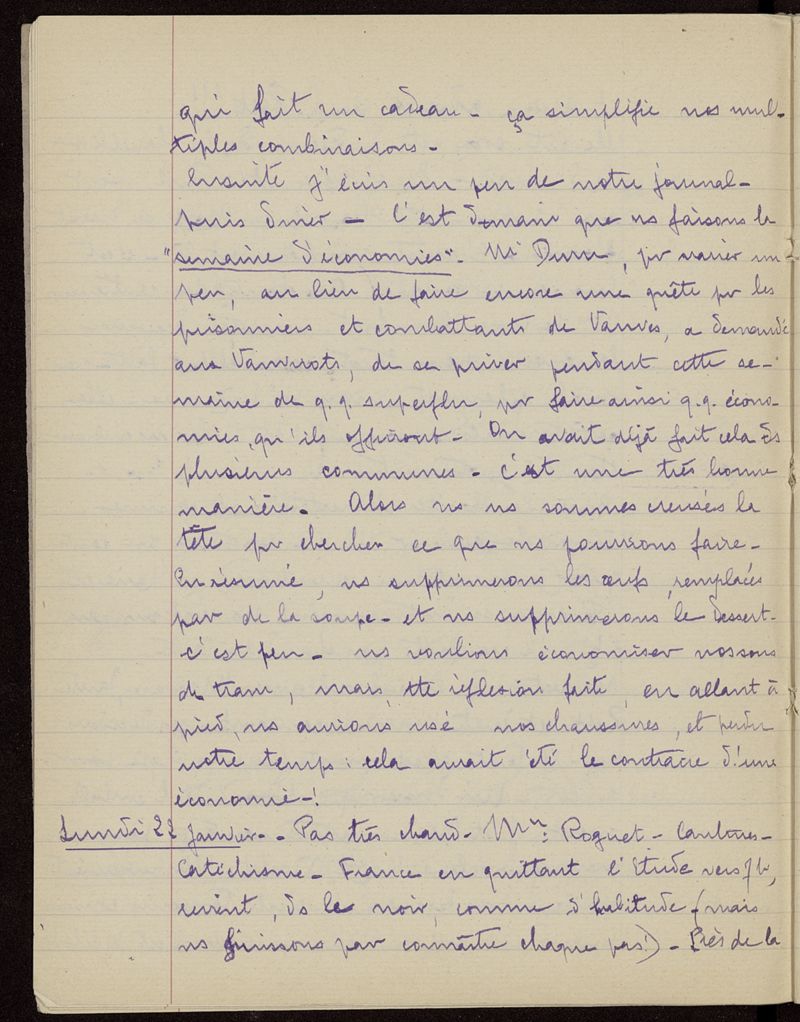 qui fait un cadeau - ça simplifie nos mul-
tiples combinaisons -
Ensuite j'écris un peu de notre journal -
puis dîner - C'est demain que ns faisons la
"semaine d'économies". Mr , pr varier un
peu, au lieu de faire encore une quête pr les
prisonniers et combattants de Vanves, a demandé
aux , de se priver pendant cette se-
maine de q.q. superflu, pr faire ainsi q.q. écono-
mies, qu'ils offriront - On avait déjà fait cela ds
plusieurs communes - c'est une très bonne
manière. Alors ns ns sommes creusées la
tête pr chercher ce que ns pourrions faire -
En résumé, ns supprimerons les œufs, remplacés
par de la soupe - et ns supprimerons le dessert -
c'est peu - ns voulions économiser nos sous
de tram, mais, tte réflexion faite, en allant à
pied, ns aurions usé nos chaussures, et perdu
notre temps : cela aurait été le contraire d'une
économie - !
Lundi 22 Janvier - Pas très chaud - Roguet -
Catéchisme - France en quittant l'étude vers 7h,
revint, ds le noir, comme d'habitude - (mais
ns finissons par connaître chaque pas !) - Près de la